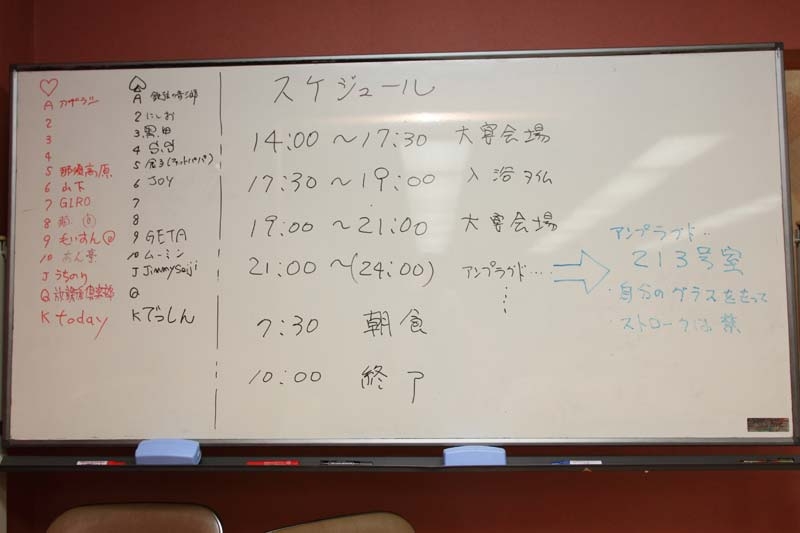 ♡
A カザラジ
2
3
4
5 那須高原
6 山下
7 GIRO
8
9 もいすん@
10 あん
J うちのり
Q
K today
♤
A
2 にしお
3 黒田
4
5
6 JOY
7
8
9 GETA
10 ムーミン
J Jimmy Seiji
Q
K でっしん
スケジュール
14:00 ~17:30 大宴会場
17:30 ~19:00 入浴タイム
19:00 ~21:00 大宴会場
21:00 ~(24:00) アンプラグド‥‥
7:30 朝食
10:00 終了
アンプラグド‥
213号室
・自分のグラスをもって
・ストロークは禁